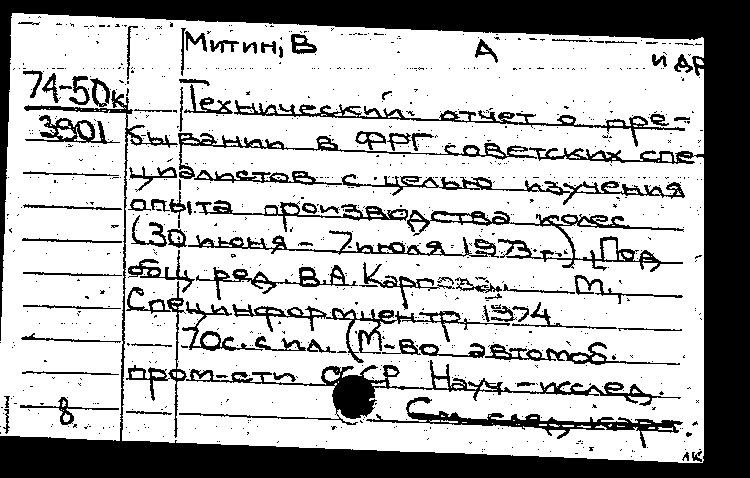 Митин, В А и др
74-50к
3901
Технический отчет о пре-
бывании в ФРГ советских спе-
циалистов с целью изучения
опыта производства колес
(30 июня - 7 июля 1973 г.). [Под
общ. ред. В.А. Карпова. М.,
Специнформцентр, 1974.
70с. с ил. (М-во автомоб.
пром-сти СССР. Науч.-исслед.
См. след. карт.
8